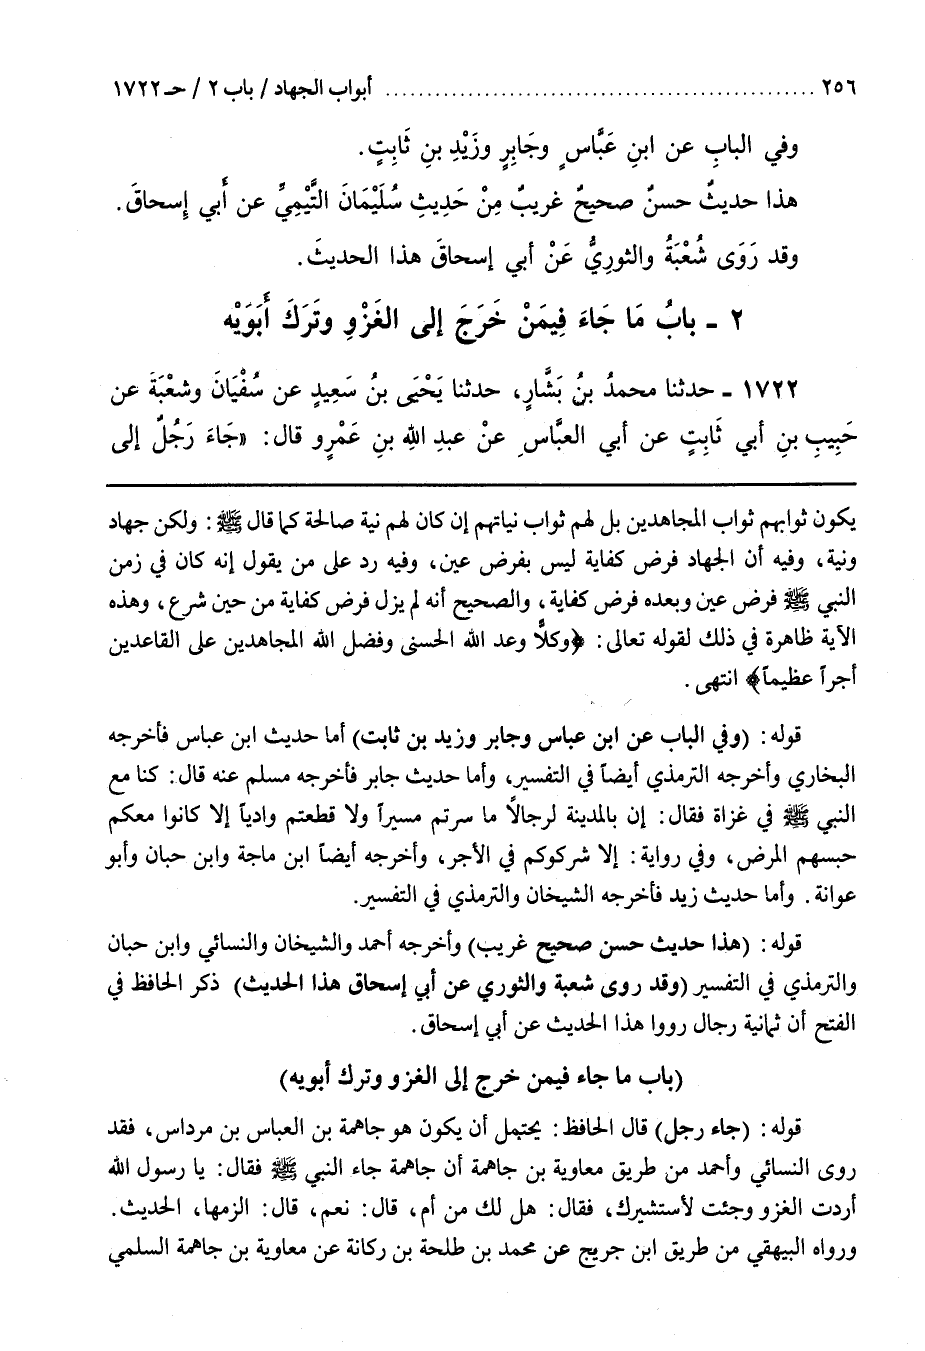 ٢٥٦ ........................................ أبواب الجهاد / باب ٢ / حـ ١٧٢٢
وفي البابِ عن ابنِ عَبَّاسٍ وجَابِرٍ وزَيْدِ بنِ ثَابِتٍ.
هذا حديثٌ حسنٌ صحيحٌ غريبٌ مِنْ حَدِيثِ سُلَيْمَانَ التَّيْمِيِّ عن أَبي إِسحاقَ.
وقد رَوَى شُعْبَةُ والثورِيُّ عَنْ أبي إسحاقَ هذا الحديثَ.
٢ ـ بابُ مَا جَاءَ فِيمَنْ خَرَجَ إلى الغَزْوِ وتَرَكَ أَبَوَيْه
١٧٢٢ ـ حدثنا محمدُ بنُ بَشَّارٍ، حدثنا يَحْيَى بنُ سَعِيدٍ عن سُفْيَانَ وشعْبَةَ عن
حَبِيبِ بنِ أبي ثَابِتٍ عن أبي العبَّاسِ عنْ عبدِ اللهِ بنِ عَمْرٍو قال: «جَاءَ رَجُلٌ إلى
يكون ثوابهم ثواب المجاهدين بل لهم ثواب نياتهم إن كان لهم نية صالحة كما قال ﷺ: ولكن جهاد
ونية، وفيه أن الجهاد فرض كفاية ليس بفرض عين، وفيه رد على من يقول إنه كان في زمن
النبي ﷺ فرض عين وبعده فرض كفاية، والصحيح أنه لم يزل فرض كفاية من حين شرع، وهذه
الآية ظاهرة في ذلك لقوله تعالى: ﴿وكلاًّ وعد الله الحسنى وفضل الله المجاهدين على القاعدين
أجراً عظيماً﴾ انتهى.
قوله: (وفي الباب عن ابن عباس وجابر وزيد بن ثابت) أما حديث ابن عباس فأخرجه
البخاري وأخرجه الترمذي أيضاً في التفسير، وأما حديث جابر فأخرجه مسلم عنه قال: كنا مع
النبي ﷺ في غزاة فقال: إن بالمدينة لرجالاً ما سرتم مسيراً ولا قطعتم وادياً إلا كانوا معكم
حبسهم المرض، وفي رواية: إلا شركوكم في الأجر، وأخرجه أيضاً ابن ماجة وابن حبان وأبو
عوانة. وأما حديث زيد فأخرجه الشيخان والترمذي في التفسير.
قوله: (هذا حديث حسن صحيح غريب) وأخرجه أحمد والشيخان والنسائي وابن حبان
والترمذي في التفسير (وقد روى شعبة والثوري عن أبي إسحاق هذا الحديث) ذكر الحافظ في
الفتح أن ثمانية رجال رووا هذا الحديث عن أبي إسحاق.
(باب ما جاء فيمن خرج إلى الغزو وترك أبويه)
قوله: (جاء رجل) قال الحافظ: يحتمل أن يكون هو جاهمة بن العباس بن مرداس، فقد
روى النسائي وأحمد من طريق معاوية بن جاهمة أن جاهمة جاء النبي ﷺ فقال: يا رسول الله
أردت الغزو وجئت لأستشيرك، فقال: هل لك من أم، قال: نعم، قال: الزمها، الحديث.
ورواه البيهقي من طريق ابن جريج عن محمد بن طلحة بن ركانة عن معاوية بن جاهمة السلمي